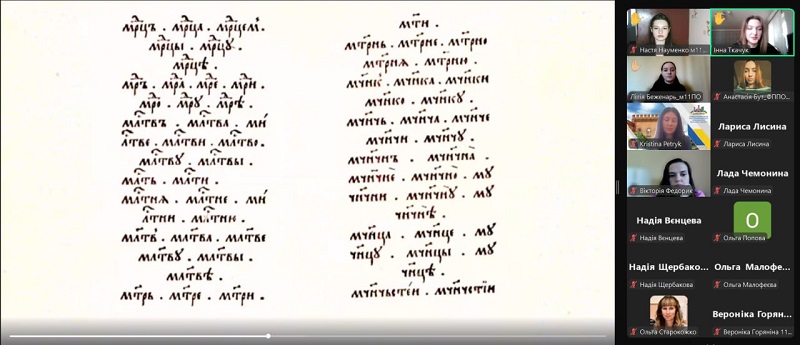 мр҃цъ . мр҃ца . мр҃цемъ .
мр҃цы . мр҃цу .
мр҃цѣ .
мр҃ъ . мр҃а . мр҃е . мр҃и .
мр҃ю . мр҃у . мр҃ѣ .
мл҃твъ . мл҃тва . мл҃
тве . мл҃тви . мл҃тво .
мл҃тву . мл҃твы .
мл҃ть . мл҃ти .
мл҃тнѧ . мл҃тне . мл҃
тни . мл҃тню .
мт҃въ . мл҃тва . мл҃тве
мл҃тву . мл҃твы .
мл҃твѣ .
мт҃рь . мт҃ре . мт҃ри .
мт҃и .
мт҃рнь . мт҃рне . мт҃рно
мт҃рнѧ . мт҃рню .
мч҃нк . мч҃нка . мч҃нки
мч҃нко . мч҃нку .
мч҃нчь . мч҃нча . мч҃нче
мч҃нчи . мч҃нчу .
мч҃ничнъ . мч҃нчна .
мч҃нчне . мч҃нчно . му
чн҃чни . мч҃нчну . му
чн҃чнѣ .
мч҃нца . мч҃нце . му
чн҃цу . мч҃нцы . му
чн҃цѣ .
мч҃ньстеи . мч҃нчестїи
Настя Науменко м11...
Інна Ткачук
Лілія Беженарь_м11ПО
Анастасія бут_ФППО...
Kristina Petryk
Лариса Лисина
Лариса Лисина
Вікторія Федорик
Лада Чемонина
Лада Чемонина
Надія Вєнцева
Надія Вєнцева
О
Ольга Попова
Надія Щербако...
Надія Щербакова
Ольга Малофе...
Ольга Малофеєва
Ольга Старокожко
Вероніка Горян...
Вероніка Горяніна 11...